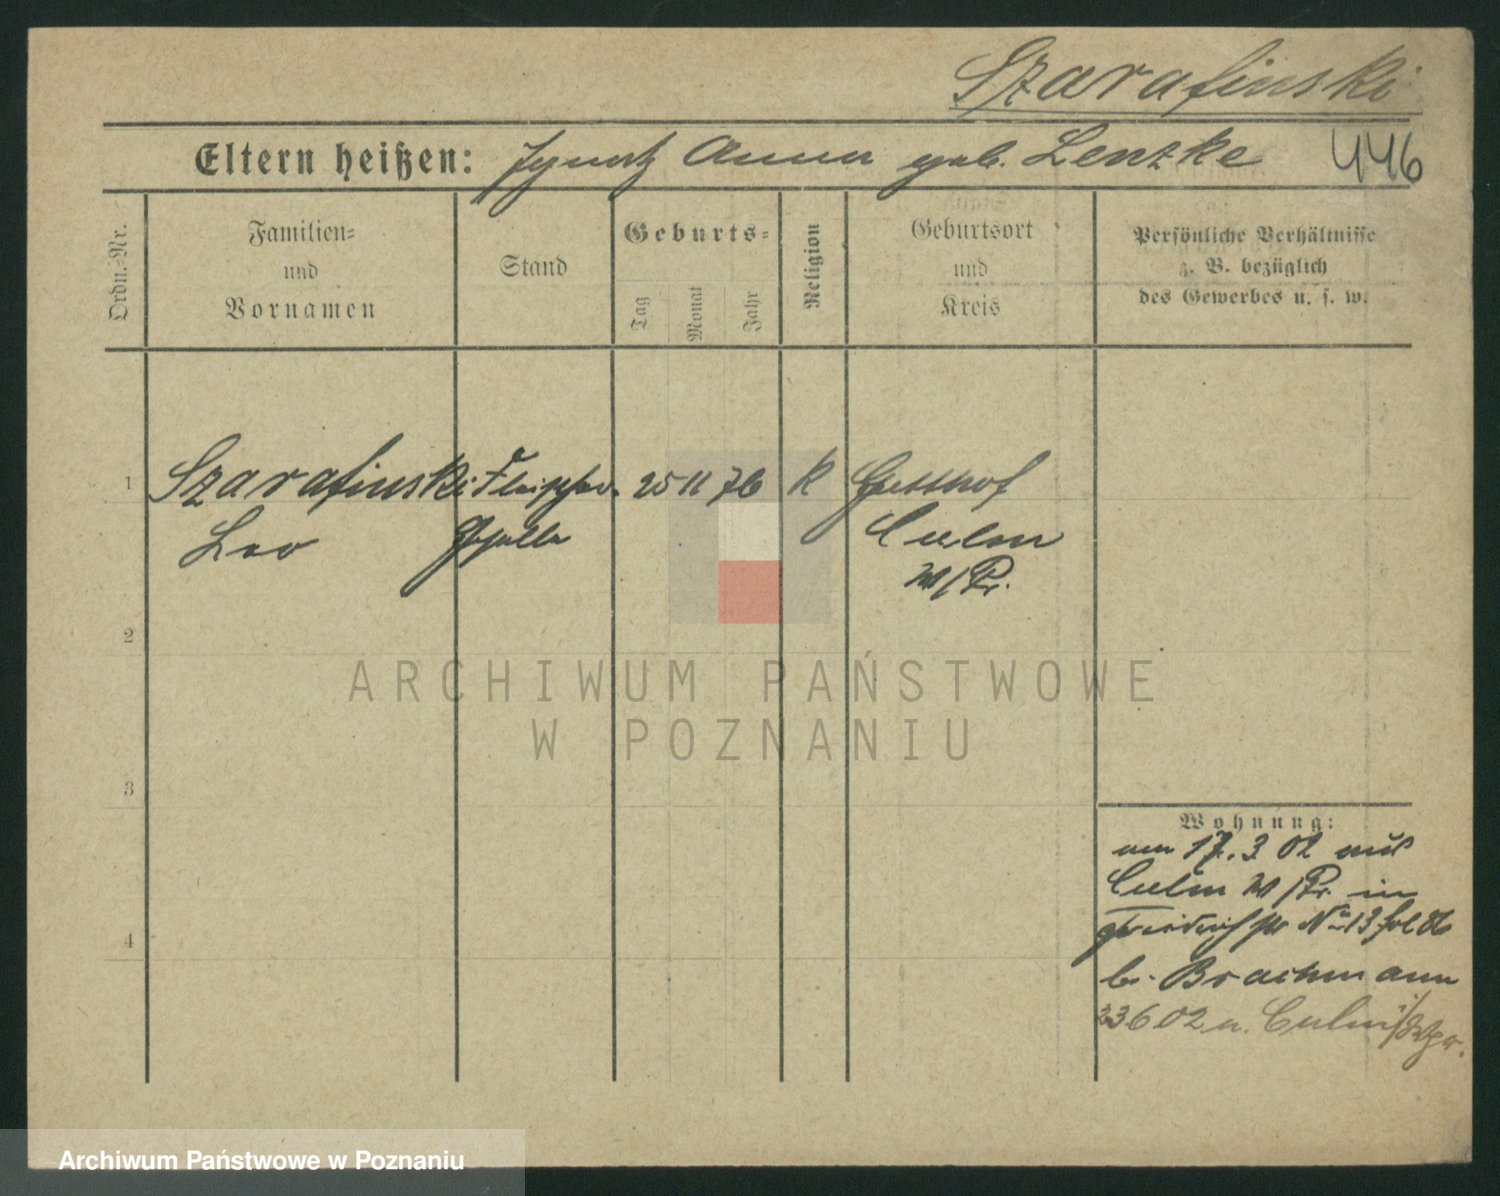 Szarafinski
Eltern heißen: Ignatz Anna geb. Lentzke 446
Ordn.-Nr.
Familien-
und
Vornamen
Stand
Geburts-
Tag
Monat
Jahr
Religion
Geburtsort
und
Kreis
Persönliche Verhältnisse
z. B. bezüglich
des Gewerbes u. s. w.
1 Szarafinski Fleischer 25 11 76 K
Leo Geselle Culm
W/Pr.
2
ARCHIWUM PAŃSTWOWE
W POZNANIU
3
Wohnung:
am 17.3 02 aus
Culm W/Pr. in
No 13
4
b. Brachmann
23 6 02 n. Culm i/Wpr.
Archiwum Państwowe w Poznaniu